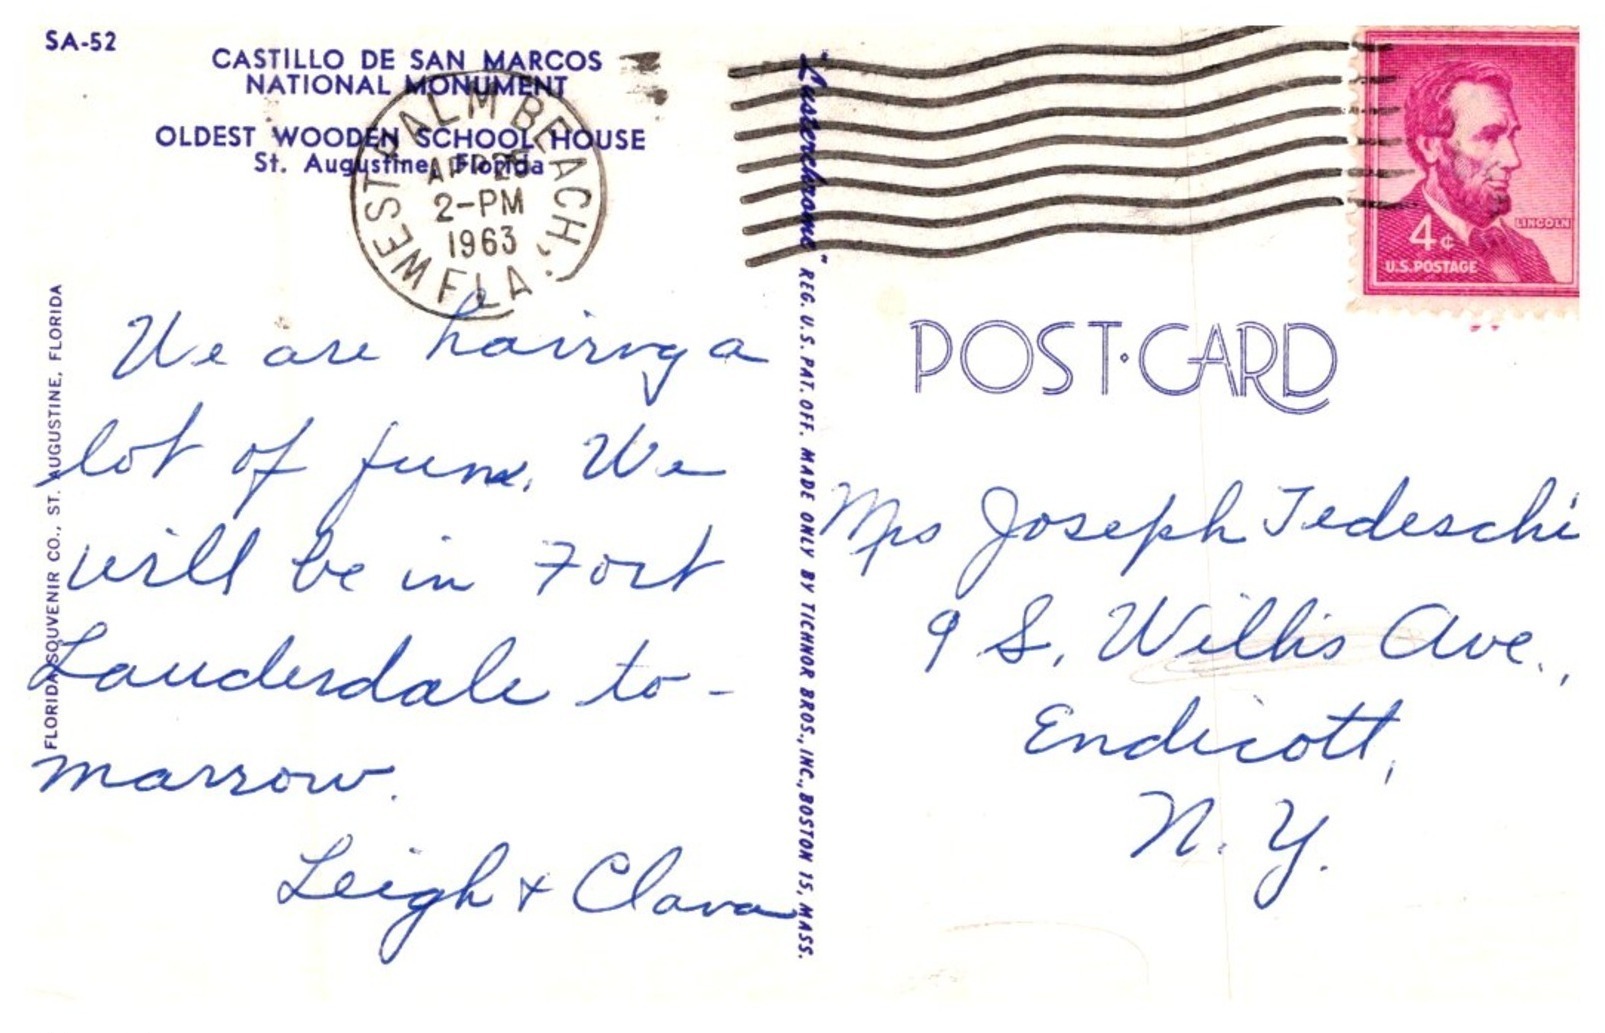 SA-52
CASTILLO DE SAN MARCOS
NATIONAL MONUMENT
OLDEST WOODEN SCHOOL HOUSE
St. Augustine, Florida
WEST PALM BEACH, FLA.
APR 25
2-PM
1963
LINCOLN
4¢
U.S. POSTAGE
POST·CARD
FLORIDA SOUVENIR CO., ST. AUGUSTINE, FLORIDA
"Lusterchrome" REG. U.S. PAT. OFF. MADE ONLY BY TICHNOR BROS., INC., BOSTON 15, MASS.
We are having a
lot of fun. We
will be in Fort
Lauderdale to-
marrow.
Leigh + Clara
Mrs Joseph Tedeschi
9 S. Willis Ave.,
Endicott,
N. Y.